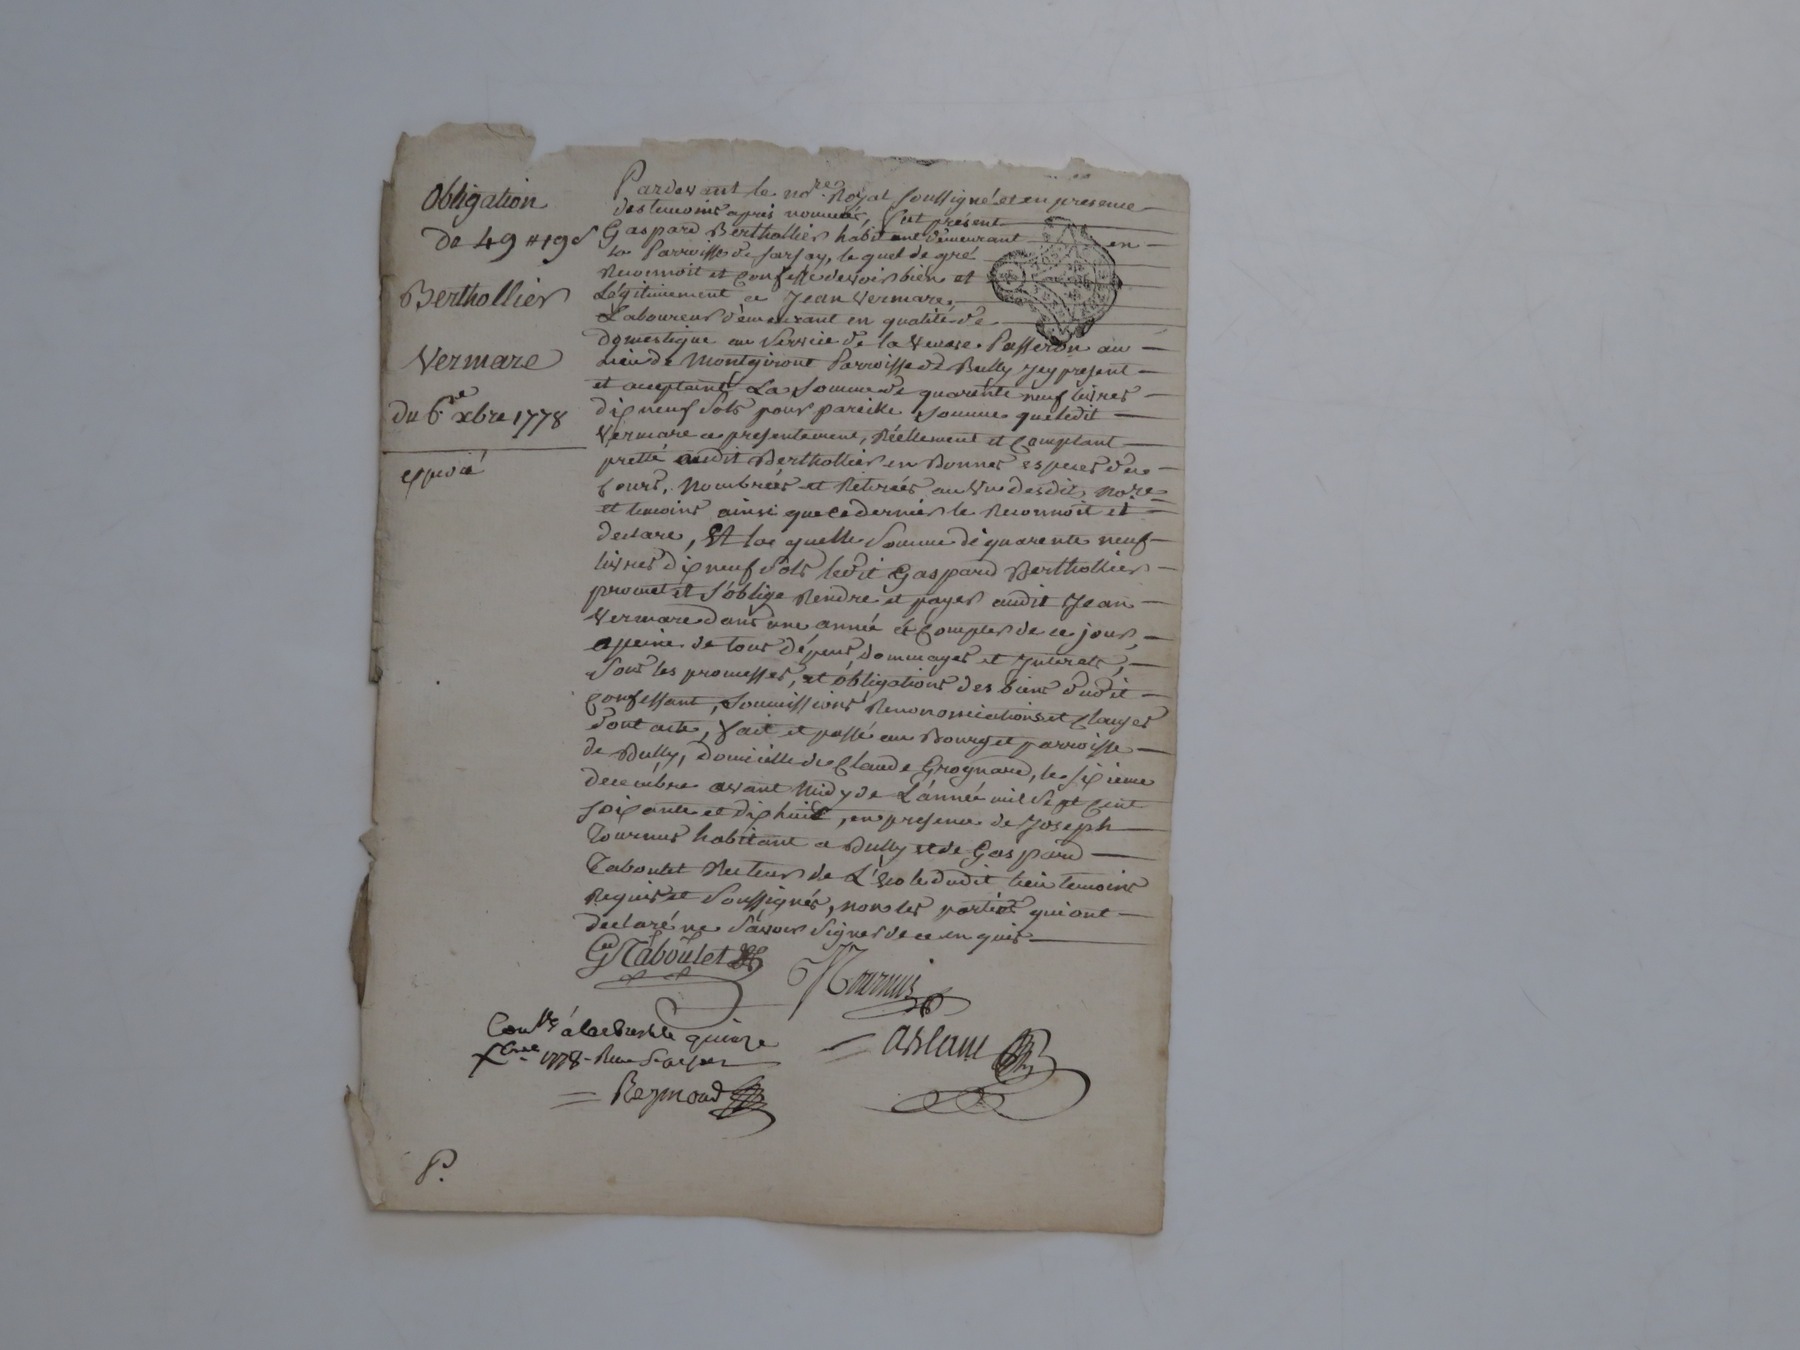 Obligation
De 49 # 19 s
Berthollier
Vermare
du 6.re xbre 1778
expedié
Pardevant le no.re Royal soussigné et en presence
des temoins apres nommés, fut présent
Gaspard Berthollier habitant demeurant en
la Parroisse de Sarsay, lequel de gré
Reconnoit et confesse devoir bien et
Légitimement a Jean Vermare,
Laboureur demeurant en qualité de
domestique au service de la veuve Passeron au
lieu de Montgiront Parroisse de Bully icy present
et acceptant La somme de quarente neuf livres
dix neuf sols pour pareille somme que ledit
Vermare a presentement, Réellement et Comptant
pretté audit Berthollier en Bonnes especes de
cours, Nombrées et Retirées au vu desdit no.re
et temoins ainsi que ce dernier le Reconnoit et
declare, Et la quelle somme de quarente neuf
livres dix neuf sols ledit Gaspard Berthollier
promet et s'oblige Rendre et payer audit Jean
Vermare dans une année à Compter de ce jour,
a peine de tous dépens dommages et Interets,
sous les promesses, et obligations des biens dudit
Confessant, soumissions Renonciations et Clauses
dont acte, fait et passé au Bourg et parroisse
de Bully, domicille de Claude Grognard, le sixieme
decembre avant Midy de L'année mil sept Cent
soixante et dix huit, en presence de Joseph
Tournus habitant a Bully et de Gaspard
Taboulet Recteur de L'école dudit lieu temoins
Requis et soussignés, non les parties qui ont
declaré ne sçavoir signer de ce enquis
G Taboulet
Tournus
Con.lé à quinze
xbre 1778
Reymond